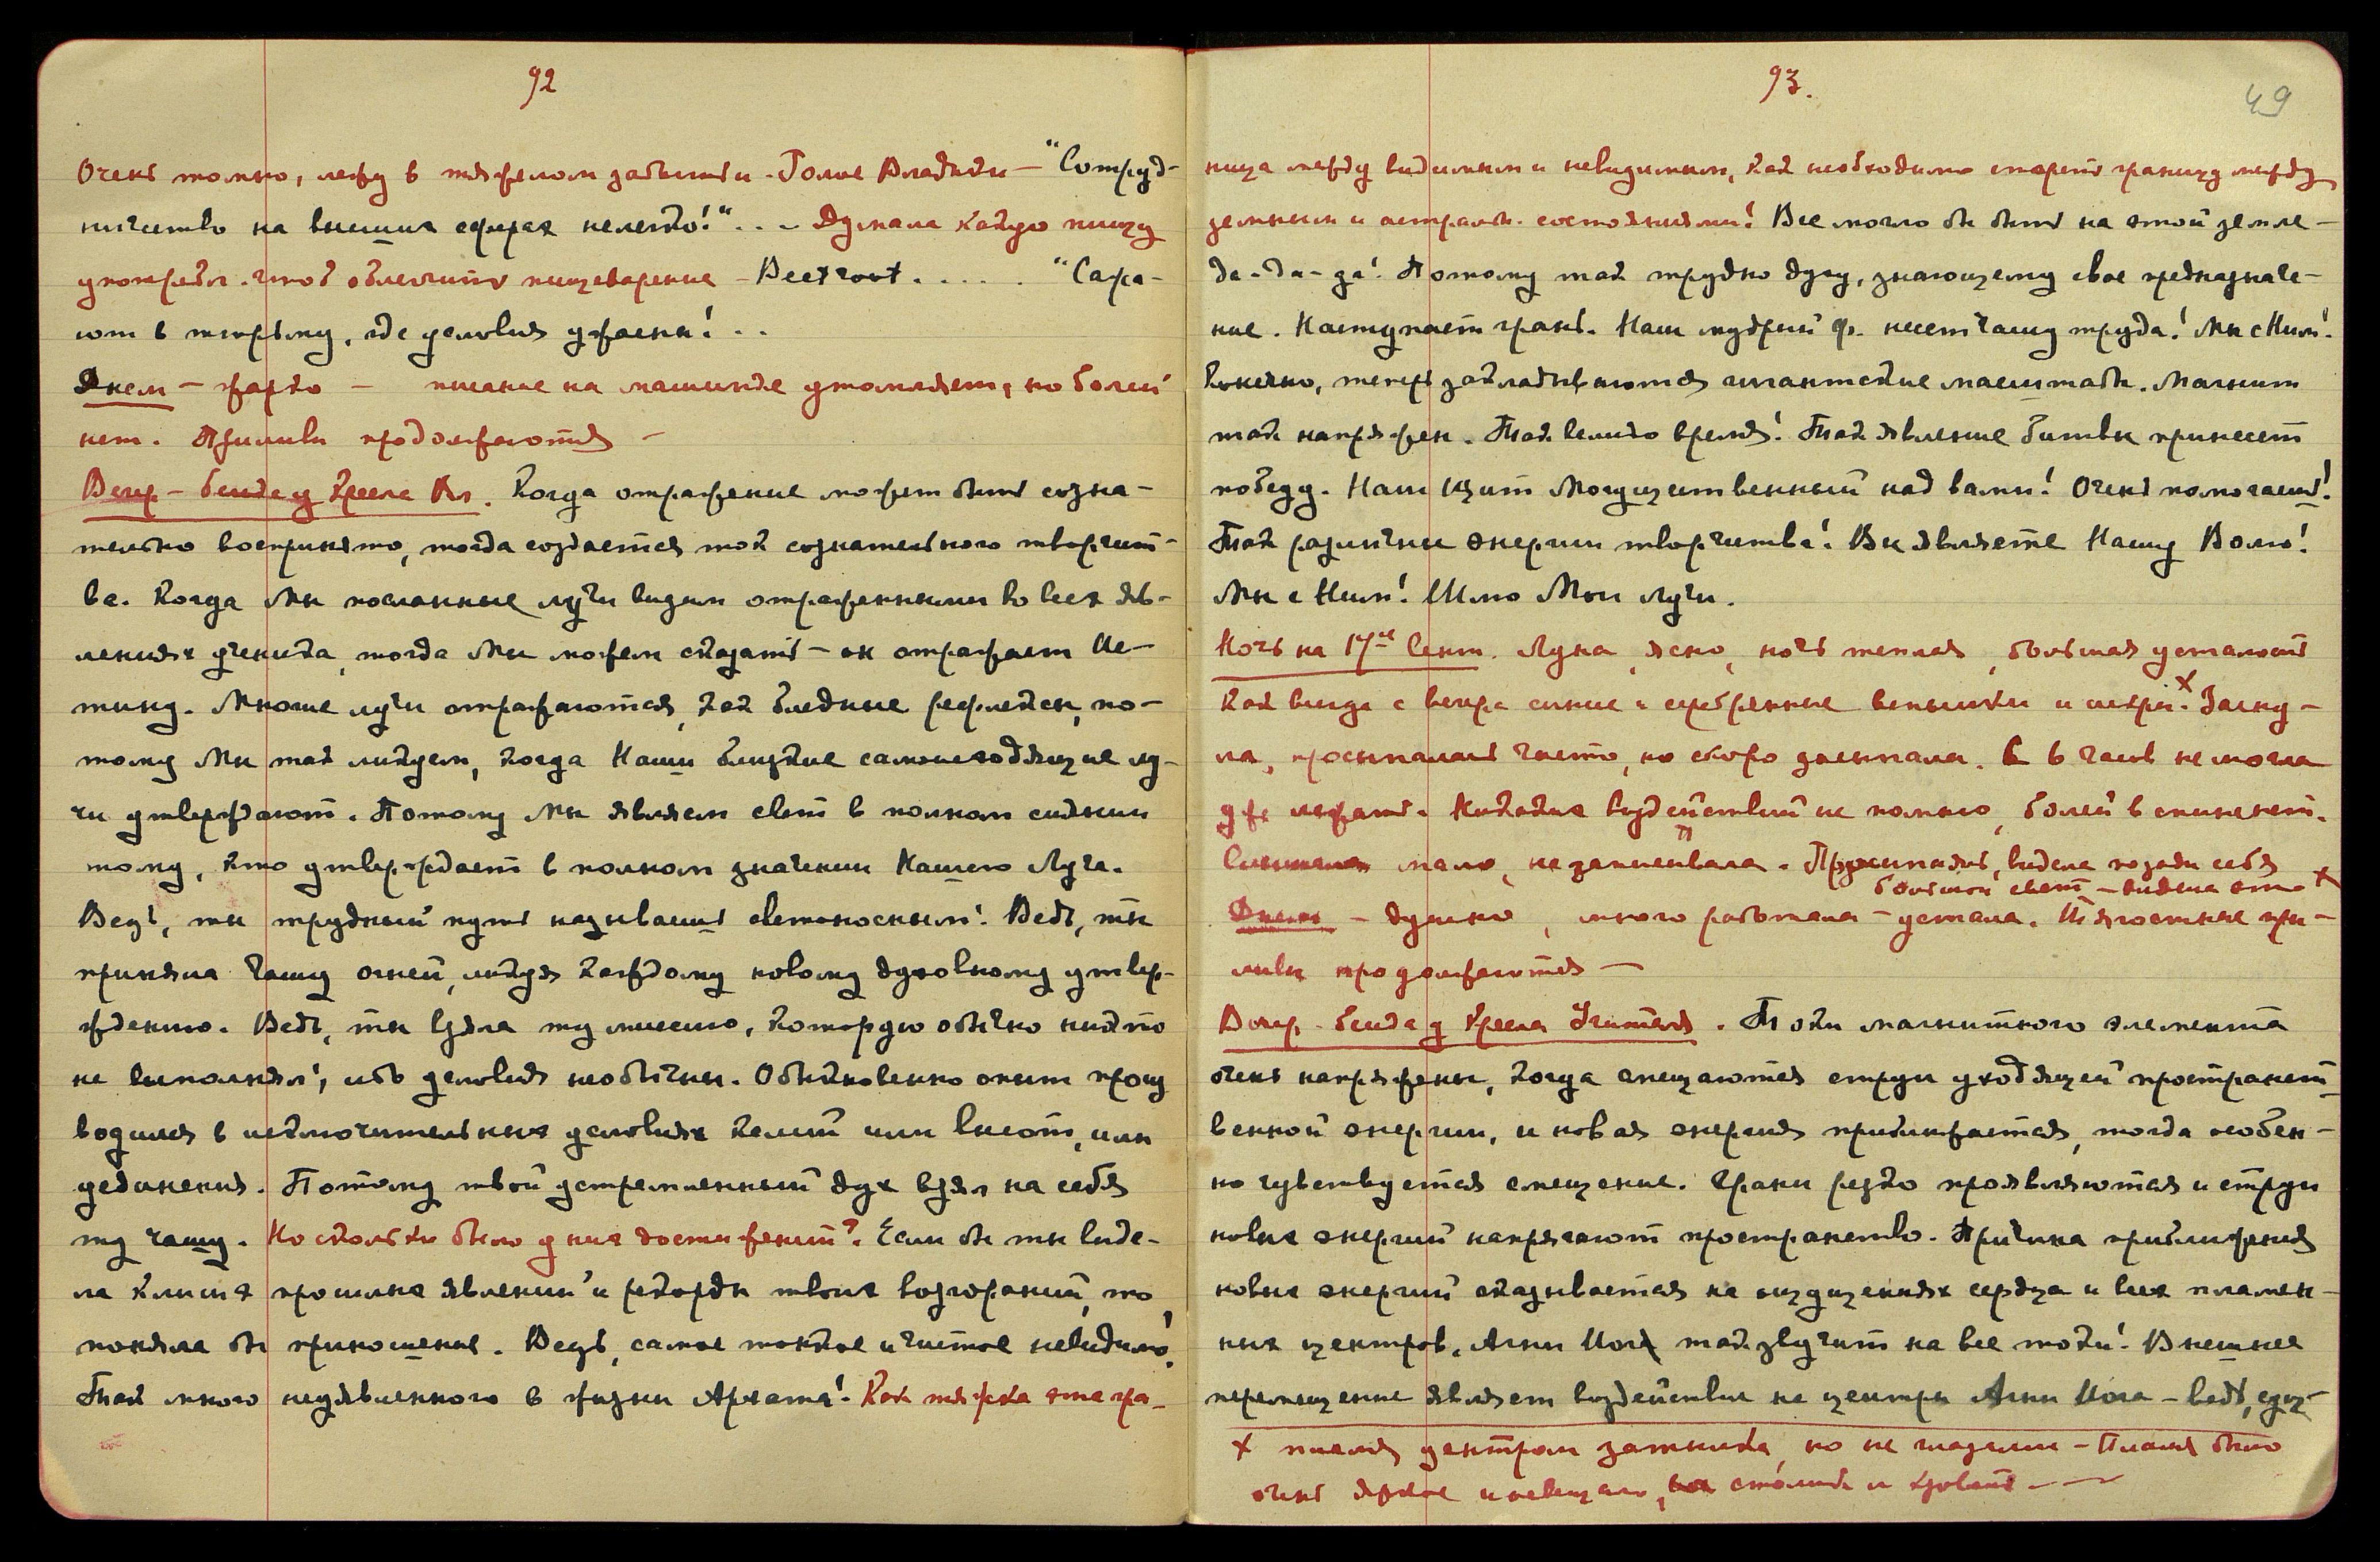 92
Очень томно, лежу в тяжелом забытьи. Голос Владыки — "Сотруд-
ничество на высших сферах нелегко!" . . — Думала какую пищу
употребл. чтоб облегчить пищеварение — Beetroot . . . . . "Сажа-
ют в тюрьму, где условия ужасны! . .
Днем — жарко — писание на машинке утомляет, но болей
нет. Приливы продолжаются —
Вечер — беседа у Кресла Вл. Когда отражение может быть созна-
тельно воспринято, тогда создается ток сознательного творчест-
ва. Когда Мы посланные лучи видим отраженными во всех яв-
лениях ученика, тогда Мы можем сказать — он отражает Ис-
тину. Многие лучи отражаются, как бледные рефлексы, по-
тому Мы так ликуем, когда Наши близкие самоисходящие лу-
чи утверждают. Потому Мы являем свет в полном сиянии
тому, кто утверждает в полном значении Нашего Луча.
Ведь, ты трудный путь называешь светоносным! Ведь, ты
приняла Чашу огней, ликуя каждому новому духовному утвер-
ждению. Ведь, ты взяла ту миссию, которую обычно никто
не выполнял, ибо условия необычны. Обыкновенно опыт произ
водился в исключительных условиях келий или высот, или
уединения. Потому твой устремленный дух взял на себя
ту чашу. Но сколько было у них достижений? Если бы ты виде-
ла клише прошлых явлений и рекорды твоих возгораний, то
поняла бы приношение. Ведь, самое тонкое и чистое невидимо!
Так много неуявленного в жизни Архата! Как тяжка эта гра-
93.
49
ница между видимым и невидимым, как необходимо стереть границу между
земным и астральн. состояниями! Все могло бы быть на этой земле —
да-да-да! Потому так трудно духу, знающему свое предназначе-
ние. Наступает грань. Наш мудрый Ф. несет чашу труда! Мы с Ним!
Конечно, теперь закладываются гигантские масштабы. Магнит
так напряжен. Так велико время! Так явление битвы принесет
победу. Наш Щит Могущественный над вами! Очень помогаешь!
Так различны энергии творчества! Вы являете Нашу Волю!
Мы с Ним! Шлю Мои лучи.
Ночь на 17-ое Сент. Луна, ясно, ночь теплая, большая усталость
Как всегда с вечера синие и серебрянные вспышки и искры. x Засну-
ла, просыпалась часто, но скоро засыпала. В 6 часов не могла
уже лежать. Никаких воздействий не помню, болей в спине нет.
мало, не записывала. Просыпаясь, видела позади себя
большой свет — видела это x
Днем — душно, много работала — устала. Тягостные при-
ливы продолжаются —
Вечер — беседа у Кресла Учителя. Токи магнитного элемента
очень напряжены, когда смещаются струи уходящей пространст
венной энергии, и новая энергия приближается, тогда особен-
но чувствуется смещение. Грани резко проявляются и струи
новых энергий напрягают пространство. Причина приближения
новых энергий сказывается на ощущениях сердца и всех пламен-
ных центров. Агни Йога так звучит на все токи! Внешнее
перемещение являет воздействие на центры Агни Йога — ведь,
x пламя центром затылка, но не глазами — Пламя было
очень яркое и освещало, столик и кровать. —